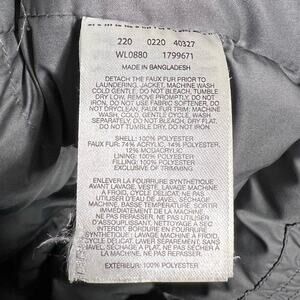 220 0220 40327
WL0880 1799671
MADE IN BANGLADESH
DETACH THE FAUX FUR PRIOR TO
LAUNDERING, JACKET, MACHINE WASH
COLD GENTLE, DO NOT BLEACH, TUMBLE
DRY LOW, REMOVE PROMPTLY, DO NOT
IRON, DO NOT USE FABRIC SOFTENER, DO
NOT DRYCLEAN, FAUX FUR TRIM: MACHINE
WASH, COLD, GENTLE CYCLE, WASH
SEPARATELY, DO NOT BLEACH, DRY FLAT,
DO NOT TUMBLE DRY, DO NOT IRON
SHELL: 100% POLYESTER
FAUX FUR: 74% ACRYLIC, 14% POLYESTER,
12% MODACRYLIC
LINING: 100% POLYESTER
FILLING: 100% POLYESTER
EXCLUSIVE OF TRIMMING
ENLEVER LA FOURRURE SYNTHÉTIQUE
AVANT LAVAGE, VESTE, LAVAGE MACHINE
À FROID, CYCLE DÉLICAT, NE PAS
UTILISER D'EAU DE JAVEL, SÉCHAGE
MACHINE, BASSE TEMPÉRATURE, SORTIR
IMMÉDIATEMENT DE LA MACHINE,
NE PAS REPASSER, NE PAS UTILISER
D'ASSOUPLISSANT, NE PAS
NETTOYAGE À SEC
INTERDIT, LAVAGE MACHINE À FROID,
CYCLE DÉLICAT, LAVER SÉPARÉMENT, SANS
JAVEL, SÉCHAGE À PLAT, NE PAS SÉCHER
EN MACHINE, NE PAS REPASSER
EXTÉRIEUR: 100% POLYESTER